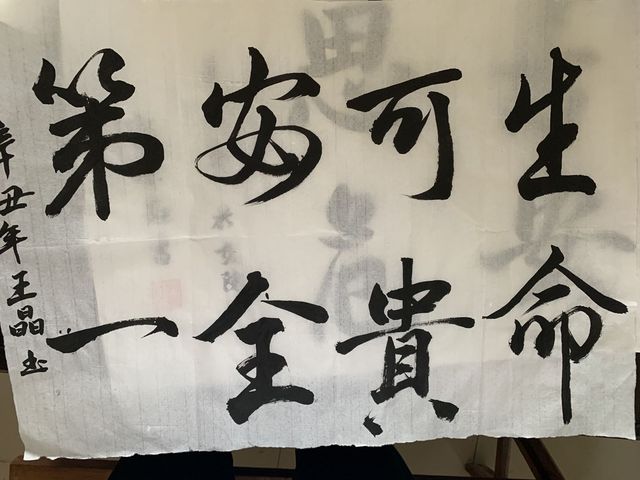 生命
可貴
安全
第一
辛丑年王晶书